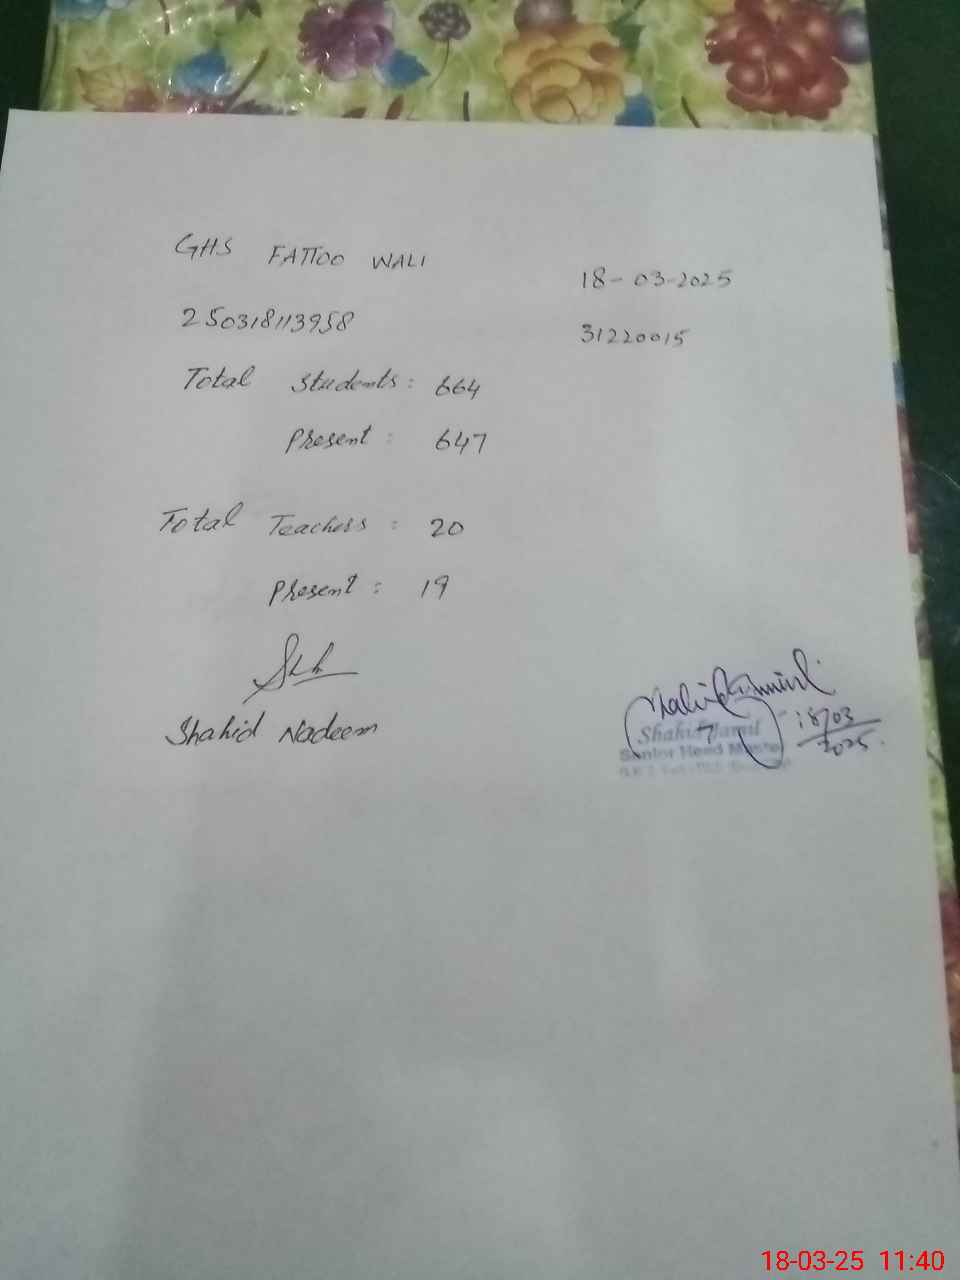 GHS FATTOO WALI
18-03-2025
250318113958
31220015
Total Students: 664
Present: 647
Total Teachers: 20
Present: 19
Shahid Nadeem
18/03
2025.
Shahid Jamil
Senior Head Master
18-03-25 11:40